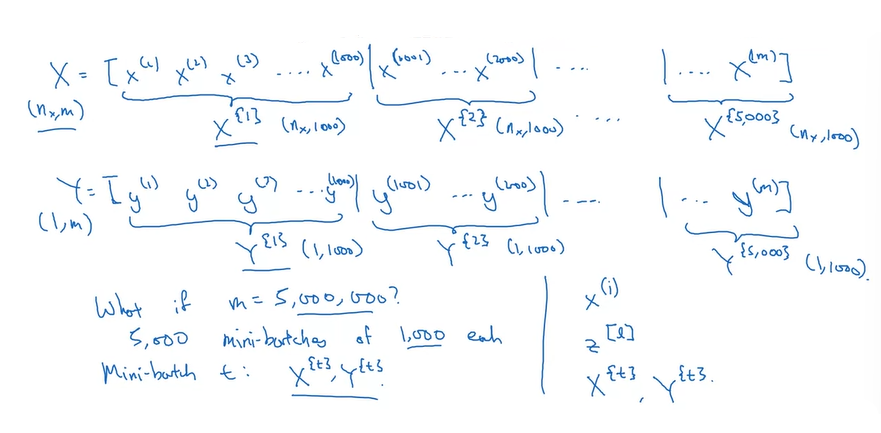 X = [x^(1) x^(2) x^(3) .... x^(1000) | x^(1001) ... x^(2000) | .... | .... x^(m)]
(n_x, m) X^{1} (n_x, 1000) X^{2} (n_x, 1000) .... X^{5,000} (n_x, 1000)
Y = [y^(1) y^(2) y^(3) ... y^(1000) | y^(1001) ... y^(2000) | .... | ... y^(m)]
(1, m) Y^{1} (1, 1000) Y^{2} (1, 1000) Y^{5,000} (1, 1000).
What if m = 5,000,000?
5,000 mini-batches of 1,000 each
Mini-batch t: X^{t}, Y^{t}.
x^(i)
z^[l]
X^{t}, Y^{t}.